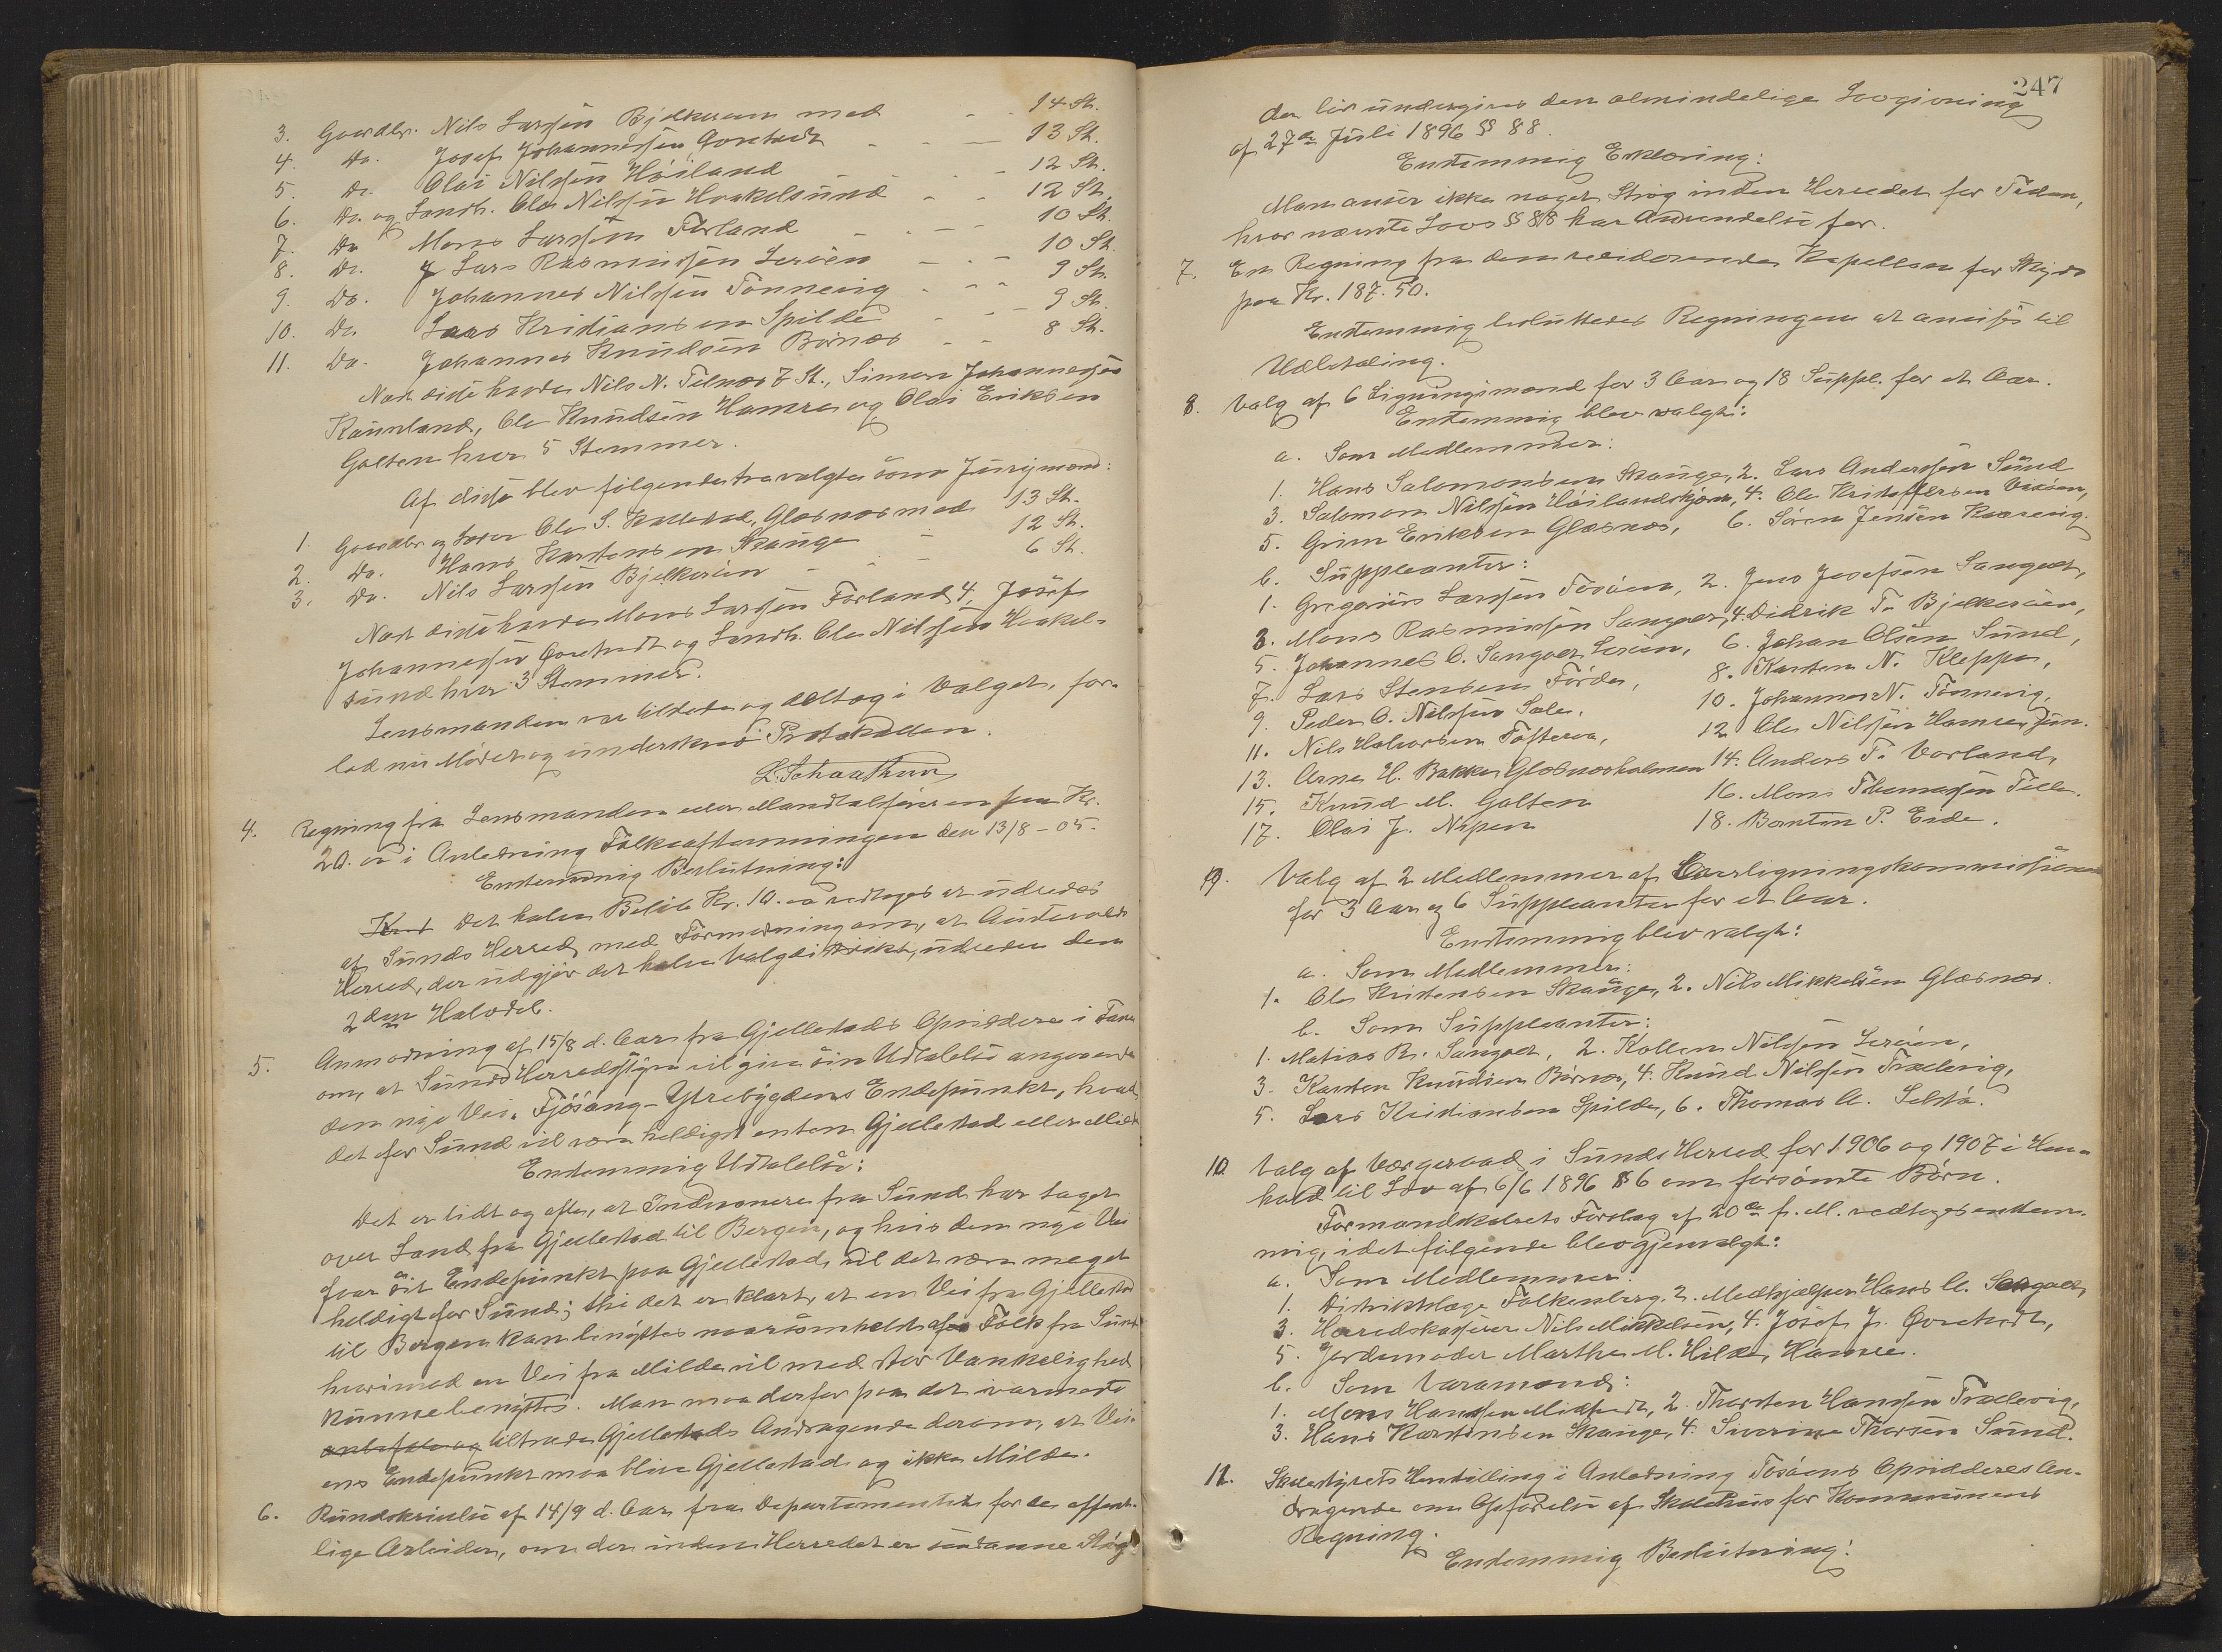 3. Gaardbr. Nils Larssen Bjelkerøen med - - 14 St.
4. Do. Josef Johannessen Qvestedt - - - 13 St.
5. Do. Olai Nilssen Høiland - - 12 St.
6. Do. og Landh. Ole Nilssen Haakelsund - - 12 St.
7. Do Mons Larssen Førland - - - 10 St.
8. Do. Lars Rasmussen Lerøen - - - 10 St.
9. Do. Johannes Nilssen Tønnevig - - - 9 St.
10. Do. Lars Kristiansen Spilde - - - 9 St.
11. Do. Johannes Knudsen Børnæs - - 8 St.
Næst disse havde Nils N. Telnæs 7 St., Simon Johannessen
Kausland, Ole Knudsen Hamre og Olai Eriksen
Golten hver 5 Stemmer.
Af disse blev følgende tre valgte som Jurymænd:
1. Gaardbr. og Lærer Ole S. Kallestad, Glæsnæs med 13 St.
2. Do. Hans Karstensen Skauge - 12 St.
3. Do. Nils Larssen Bjelkerøen - - - 6 St.
Næst disse havde Mons Larssen Førland 4, Josef
Johannessen Qvestedt og Landh. Ole Nilssen Haakel-
sund hver 3 Stemmer.
Lensmanden var tilstede og deltog i Valget, for-
lod nu Mødet og underskrev Protokollen.
L. Schaathun
4. Regning fra Lensmanden eller Mandtalsføreren paa Kr.
20.00 i Anledning Folkeafstemningen den 13/8 - 05.
Enstemmig Beslutning:
Det halve Beløb Kr. 10.00 vedtoges at udredes
af Sunds Herred med Formodning om, at Austevolds
Herred, der udgjør det halve Valgdistrikt, udreder den
2den Halvdel.
5. Anmodning af 15/8 d. Aar fra Gjellestads Opsiddere i Fane
om, at Sunds Herredsstyre vil give sin Udtalelse angaaende
den nye Vei, Fjøsang - Ytrebygdens Endepunkt, hvad
det for Sund vil være heldigst enten Gjellestad eller Milde
Enstemmig Udtalelse:
Det er tidt og ofte, at Indvaanere fra Sund har taget
over Land fra Gjellestad til Bergen, og hvis den nye Vei
faar sit Endepunkt paa Gjellestad, vil det være meget
heldigt for Sund; thi det er klart, at en Vei fra Gjellestad
til Bergen kan benyttes naarsomhelst af Folk fra Sund
hvorimod en Vei fra Milde vil med stor Vanskelighed
kunne benyttes. Man maa derfor paa det varmeste
anbefale og tiltræde Gjellestads Andragende derom, at Vei-
ens Endepunkt maa blive Gjellestad og ikke Milde.
6. Rundskrivelse af 14/9 d. Aar fra Departementet for de offent-
lige Arbeider, om der inden Herredet er saadanne Strøg
247
der bør undergives den almindelige Lovgivning
af 27de Juli 1896 § 88.
Enstemmig Erklæring:
Man anser ikke noget Strøg inden Herredet for Tiden,
hvor nævnte Lovs § 88 har Anvendelse for.
7. En Regning fra den residerende Kapellan for Skyds
paa Kr. 187.50.
Enstemmig besluttedes Regningen at anvises til
Udbetaling.
8. Valg af 6 Ligningsmænd for 3 Aar og 18 Suppl. for et Aar.
Enstemmig blev valgt:
a. Som Medlemmer:
1. Hans Salomonsen Skauge, 2. Lars Anderssen Sund
3. Salomon Nilssen Høilandskjøen, 4. Ole Kristoffersen Vixøen,
5. Grim Eriksen Glæsnæs, 6. Søren Jensen Kaarevig.
b. Suppleanter:
1. Gregorius Larssen Tosøen, 2. Jens Josefsen Sangolt,
3. Mons Rasmussen Sangolt, 4. Didrik T. Bjelkerøen,
5. Johannes O. Sangolt Lerøen, 6. Johan Olsen Sund,
7. Lars Stensen Førde, 8. Karsten N. Kleppe,
9. Peder O. Nilssen Sæle, 10. Johannes N. Tønnevig,
11. Nils Halvorsen Tofterøen, 12 Ole Nilssen Hamre jun.
13. Arne H. Bakke Glæsnæsholmen 14. Anders T. Vorland,
15. Knud M. Golten 16. Mons Thomassen Telle.
17. Olai J. Nipen 18. Bernten P. Eide.
9. Valg af 2 Medlemmer af Overligningskommissionen
for 3 Aar og 6 Suppleanter for et Aar.
Enstemmig blev valgt:
a. Som Medlemmer:
1. Ole Kristensen Skauge, 2. Nils Mikkelsen Glæsnæs.
b. Som Suppleanter:
1. Matias R. Sangolt, 2. Kolben Nilssen Lerøen,
3. Karsten Knudsen Børnæs, 4. Knud Nilssen Trællevig,
5. Lars Kristiansen Spilde, 6. Thomas A. Selstø.
10. Valg af Værgeraad i Sunds Herred for 1906 og 1907 i Hen-
hold til Lov af 6/6 1896 § 6 om forsømte Børn.
Formandskabets Forslag af 20de f. M. vedtoges enstem-
mig, idet følgende blev gjenvalgt:
a. Som Medlemmer:
1. Distriktslæge Falkenberg. 2. Medhjælper Hans A. Sangolt,
3. Herredskasserer Nils Mikkelsen, 4. Josef J. Qvestedt,
5. Jordemoder Marthe M. Hilde, Hamre.
b. Som Varamænd:
1. Mons Hanssen Midtvedt, 2. Thorsten Hanssen Trællevig,
3. Hans Karstensen Skauge, 4. Sverine Thorsen Sund.
11. Skolestyrets Henstilling i Anledning Tosøens Opsidderes An-
dragende om Opførelse af Skolehus for Kommunens
Regning.
Enstemmig Beslutning: